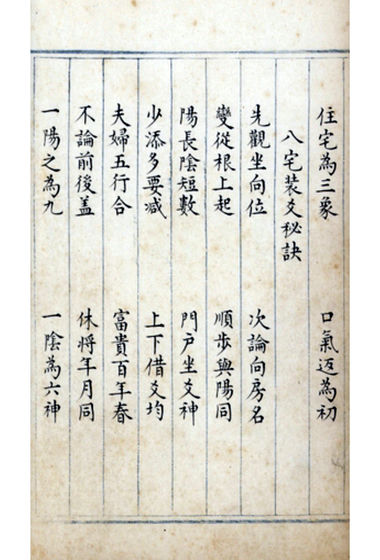 住宅為三象　口氣迈為初
八宅装爻秘訣
先觀坐向位　次論向房名
變從根上起　順步與陽同
陽長陰短數　門户坐爻神
少添多要减　上下借爻均
夫婦五行合　富貴百年春
不論前後盖　休將年月同
一陽之為九　一陰為六神